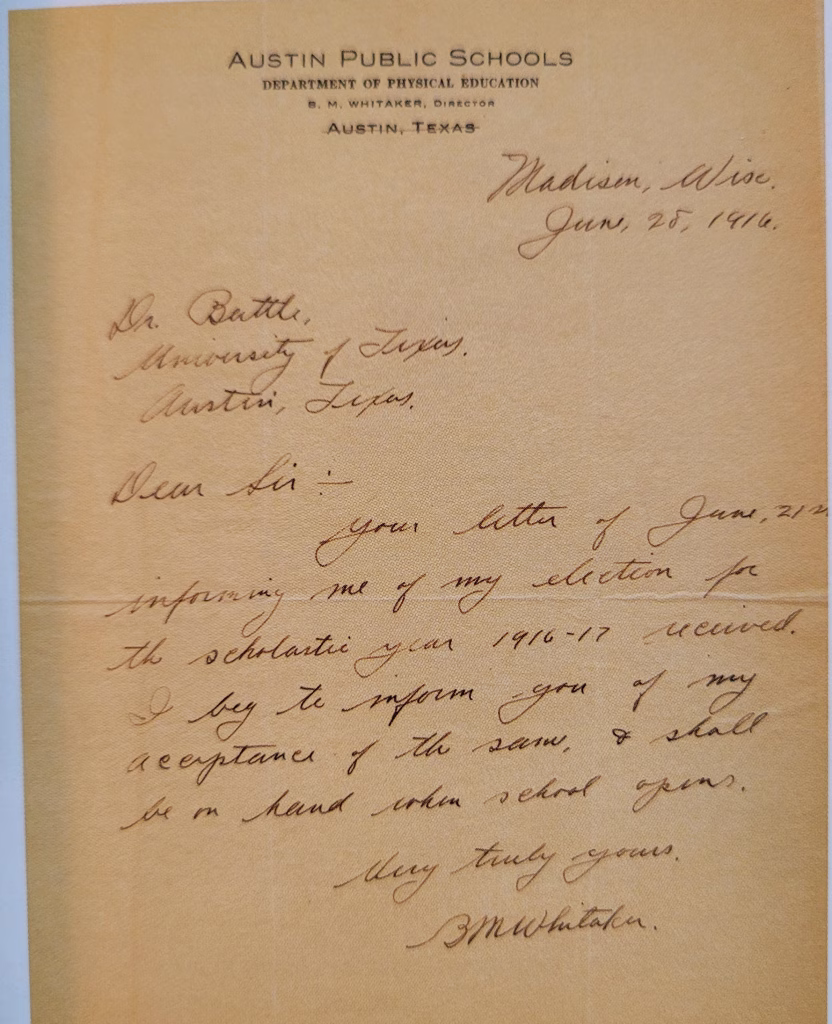 AUSTIN PUBLIC SCHOOLS
DEPARTMENT OF PHYSICAL EDUCATION
B. M. WHITAKER, DIRECTOR
AUSTIN, TEXAS
Madison, Wisc.
June, 28, 1916.
Dr. Battle,
University of Texas.
Austin, Texas.
Dear Sir :-
Your letter of June, 21
informing me of my election for
the scholastic year 1916-17 received.
I beg to inform you of my
acceptance of the same, & shall
be on hand when school opens.
Very truly yours.
BMWhitaker.